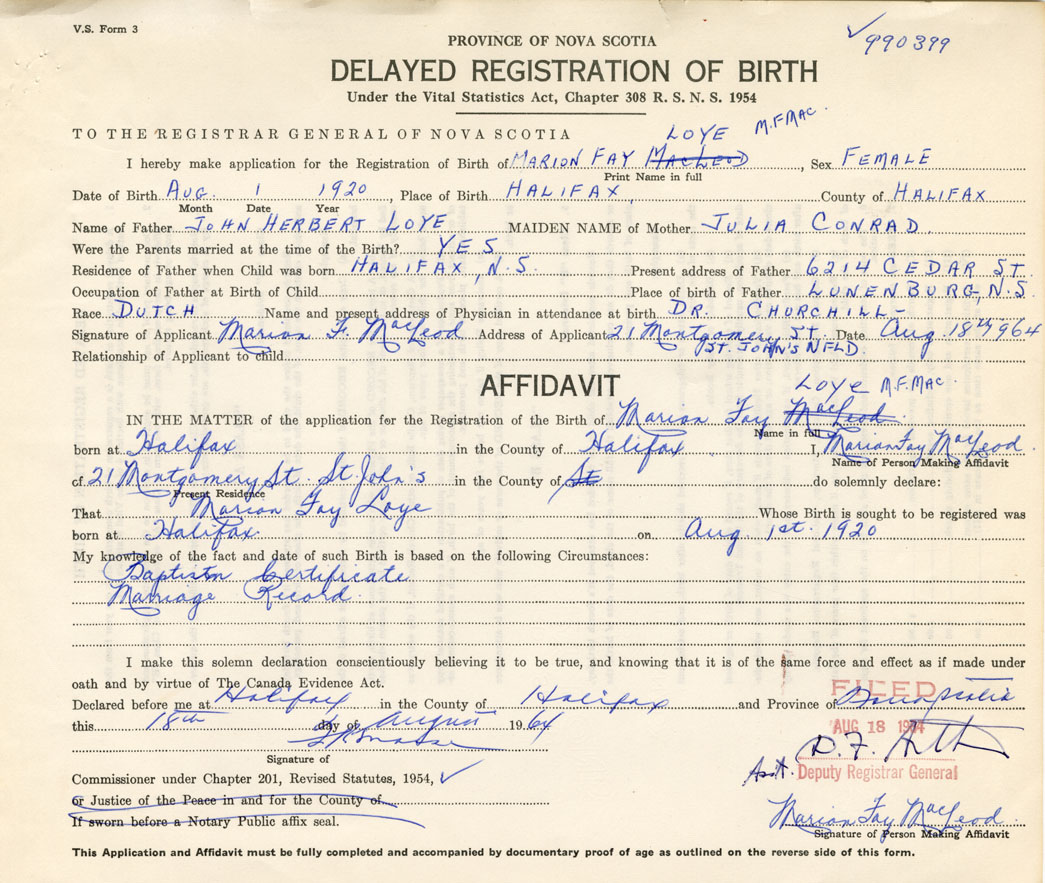 V.S. Form 3
990399
PROVINCE OF NOVA SCOTIA
DELAYED REGISTRATION OF BIRTH
Under the Vital Statistics Act, Chapter 308 R. S. N. S. 1954
TO THE REGISTRAR GENERAL OF NOVA SCOTIA LOYE M.F.MAC.
I hereby make application for the Registration of Birth of MARION FAY MACLEOD, Sex FEMALE
Print Name in full
Date of Birth AUG. 1 1920, Place of Birth HALIFAX, County of HALIFAX
Month Date Year
Name of Father JOHN HERBERT LOYE MAIDEN NAME of Mother JULIA CONRAD.
Were the Parents married at the time of the Birth? YES
Residence of Father when Child was born HALIFAX, N.S. Present address of Father 6214 CEDAR ST.
Occupation of Father at Birth of Child Place of birth of Father LUNENBURG, N.S.
Race DUTCH Name and present address of Physician in attendance at birth DR. CHURCHILL-
Signature of Applicant Marion F. MacLeod Address of Applicant 21 Montgomery ST. Date Aug 18th, 964
ST. JOHN'S NFLD.
Relationship of Applicant to child
AFFIDAVIT
LOYE M.F.MAC.
IN THE MATTER of the application for the Registration of the Birth of Marion Fay MacLeod.
Name in full
born at Halifax in the County of Halifax I, Marion Fay MacLeod
Name of Person Making Affidavit
of 21 Montgomery St. St. John's in the County of St do solemnly declare:
Present Residence
That Marion Fay Loye Whose Birth is sought to be registered was
born at Halifax. on Aug. 1st. 1920
My knowledge of the fact and date of such Birth is based on the following Circumstances:
Baptism Certificate
Marriage Record.
I make this solemn declaration conscientiously believing it to be true, and knowing that it is of the same force and effect as if made under
oath and by virtue of The Canada Evidence Act.
FILED
Declared before me at Halifax in the County of Halifax and Province of Nova Scotia
this 18th day of August 1964
AUG 18 1964
Signature of
Asst. Deputy Registrar General
Commissioner under Chapter 201, Revised Statutes, 1954,
or Justice of the Peace in and for the County of
Marion Fay MacLeod
If sworn before a Notary Public affix seal.
Signature of Person Making Affidavit
This Application and Affidavit must be fully completed and accompanied by documentary proof of age as outlined on the reverse side of this form.